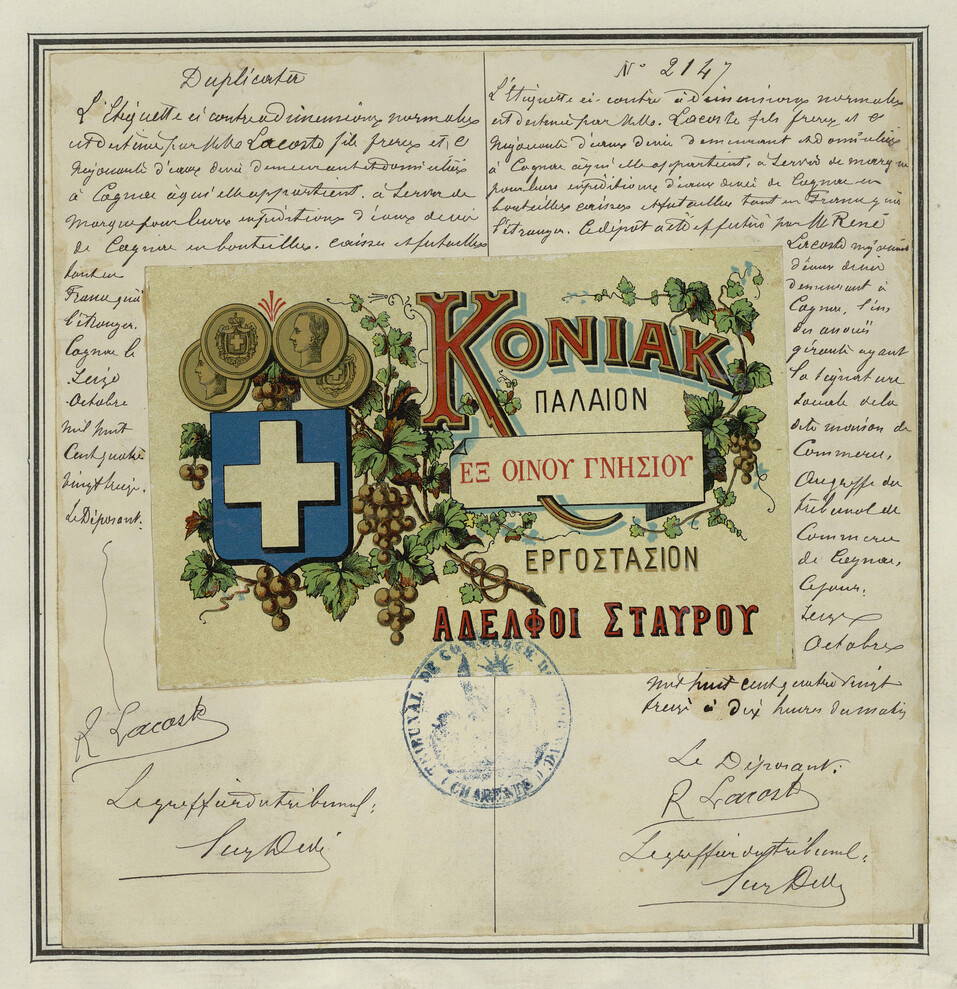 Duplicata
L'Etiquette ci contre à dimensions normales
est destinée par MM. Lacoste fils frères et Cie
négociants d'eaux de vie demeurant et domiciliés
à Cognac à qui elle appartient, à servir de
marque pour leurs expéditions d'eaux de vie
de Cognac en bouteilles, caisses et futailles
tant en
France qu'à
l'étranger.
Cognac le
seize
Octobre
mil huit
cent quatre
vingt treize.
Le Déposant.
R Lacoste
Le greffier du tribunal:
N° 2147
L'Etiquette ci-contre à dimensions normales
est destinée par MM. Lacoste fils frères et Cie
négociants d'eaux de vie demeurant et domiciliés
à Cognac à qui elle appartient, à servir de marque
pour leurs expéditions d'eaux de vie de Cognac en
bouteilles caisses et futailles tant en France qu'à
l'étranger. Ce dépôt a été effectué par M. René
Lacoste négociant
d'eaux de vie
demeurant à
Cognac, l'un
des associés
gérants ayant
la signature
sociale de la
dite maison de
Commerce,
au greffe du
tribunal de
Commerce
de Cognac,
ce jour:
seize
Octobre
mil huit cent quatre vingt
treize à dix heures du matin
Le Déposant:
R Lacoste
Le greffier du tribunal:
ΚΟΝΙΑΚ
ΠΑΛΑΙΟΝ
ΕΞ ΟΙΝΟΥ ΓΝΗΣΙΟΥ
ΕΡΓΟΣΤΑΣΙΟΝ
ΑΔΕΛΦΟΙ ΣΤΑΥΡΟΥ
TRIBUNAL DE COMMERCE DE COGNAC
(CHARENTE)